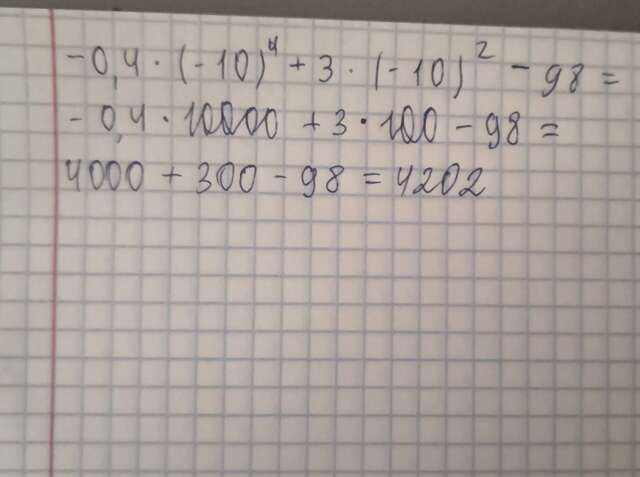 -0,4 · (-10)⁴ + 3 · (-10)² - 98 =
-0,4 · 10000 + 3 · 100 - 98 =
4000 + 300 - 98 = 4202